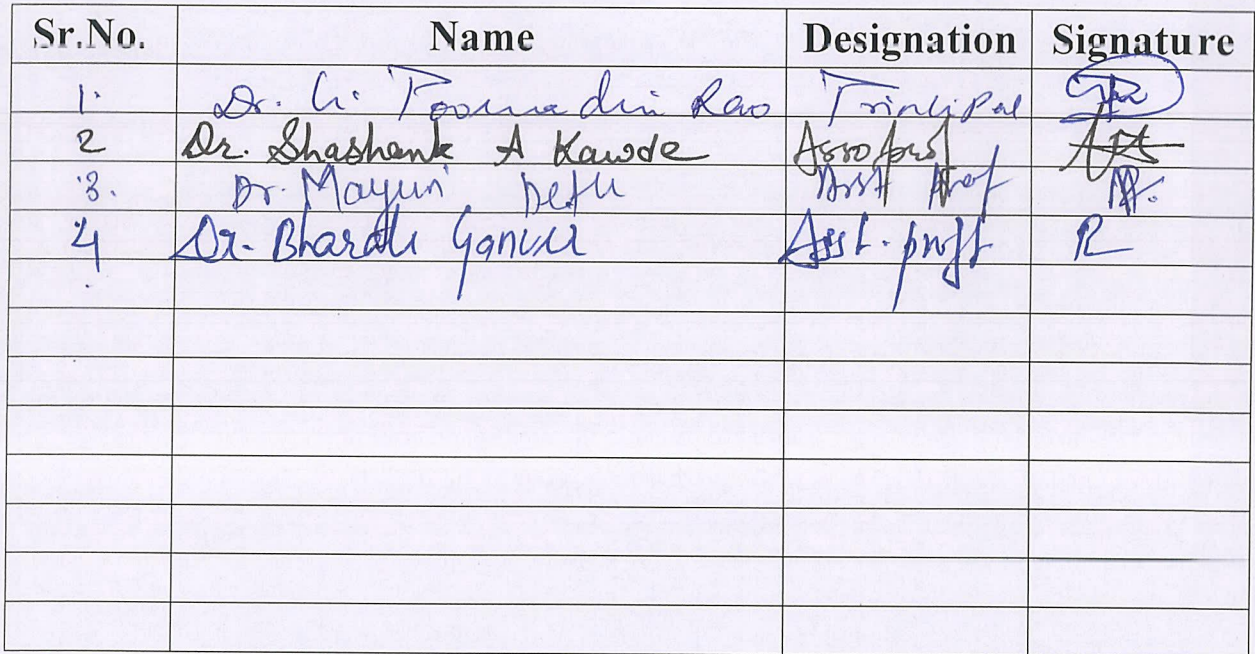 Sr.No. Name Designation Signature
1. Dr. G. Rao Principal
2 Dr. Shashank A Kawde Asso Prof
3. Dr. Mayuri Asst Prof
4 Dr. Bharati Asst. proft